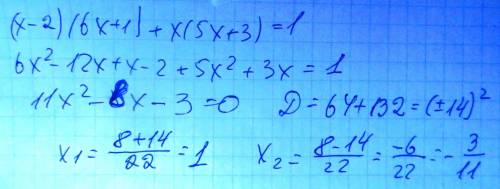 (x-2)(6x+1)+x(5x+3)=1
6x²-12x+x-2+5x²+3x=1
11x²-8x-3=0 D=64+132=(±14)²
x₁=(8+14)/22=1 x₂=(8-14)/22=-6/22=-3/11